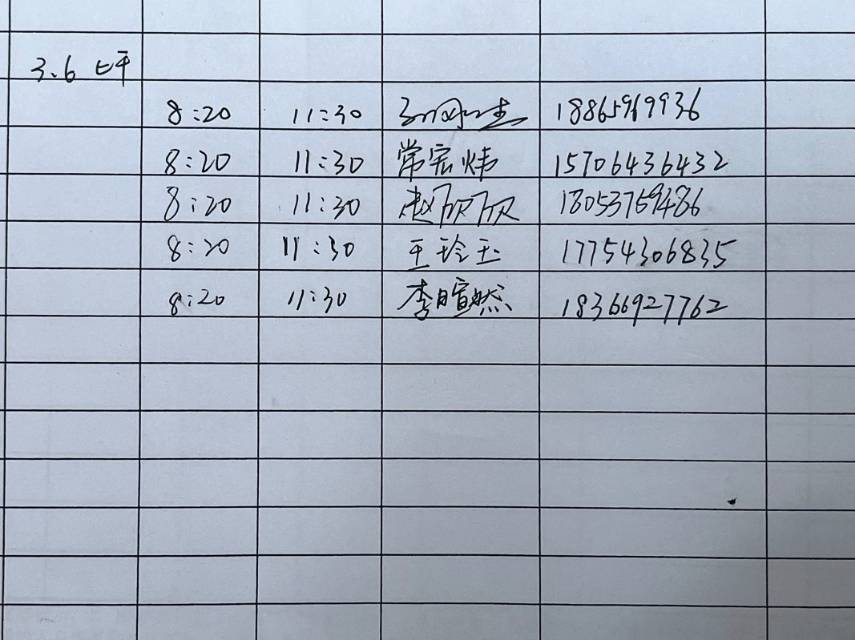 3.6 上午
8:20 11:30 18865969936
8:20 11:30 常宏炜 15706436432
8:20 11:30 赵欣欣 18053769486
8:20 11:30 王玲玉 17754306835
8:20 11:30 李暄然 18366927762